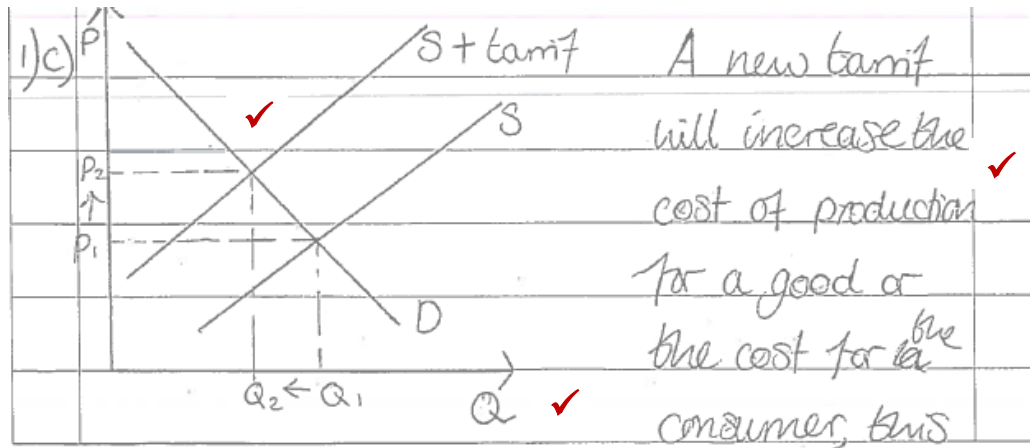 1)c)
P
S + tariff
S
P2
↑
P1
D
Q2 ← Q1
Q
A new tariff
will increase the
cost of production
for a good or
the cost for the
consumer, thus